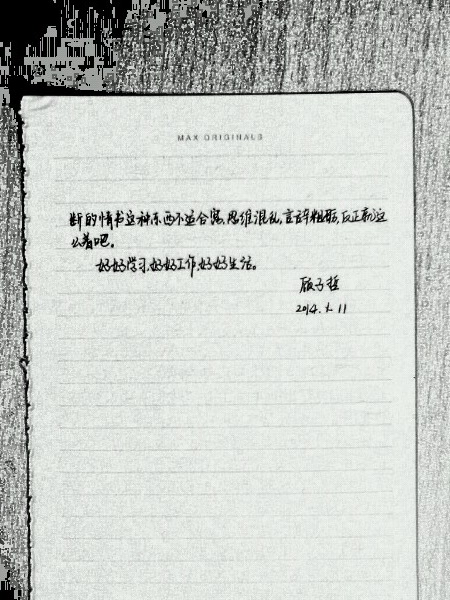 MAX ORIGINALS
断的情书这种东西不适合寫,思维混乱,言辞粗鄙,反正就这
么着吧。
好好学习,好好工作,好好生活。
顾子哲
2014.1.11